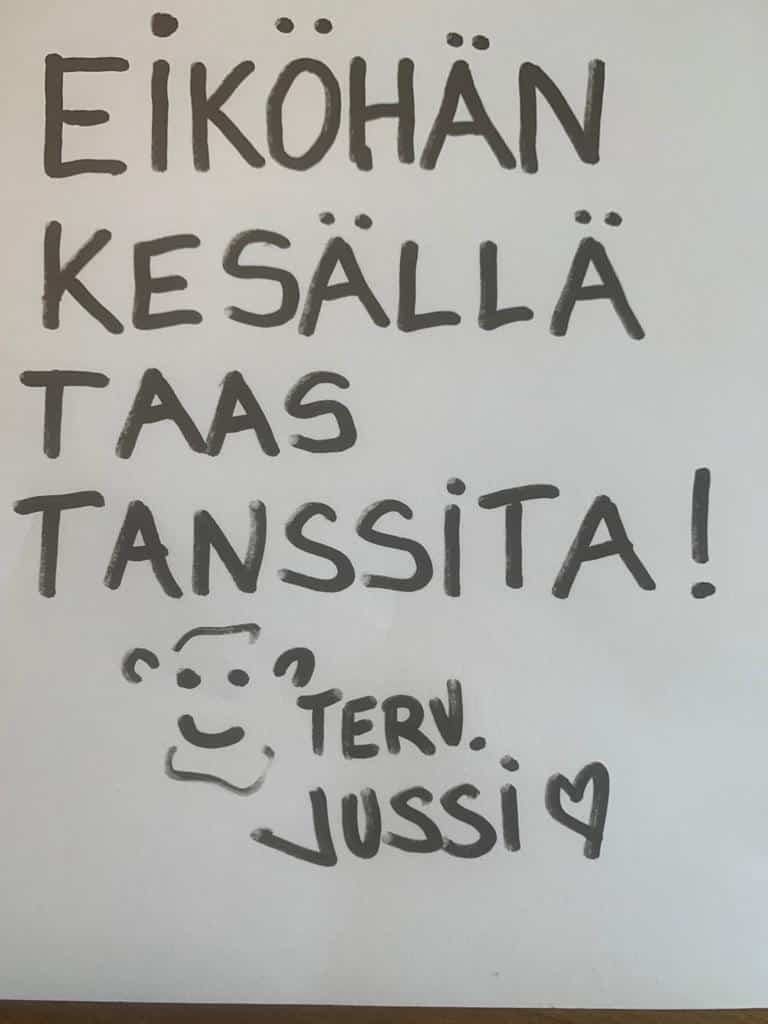 EIKÖHÄN
KESÄLLÄ
TAAS
TANSSITA!
TERV.
JUSSI